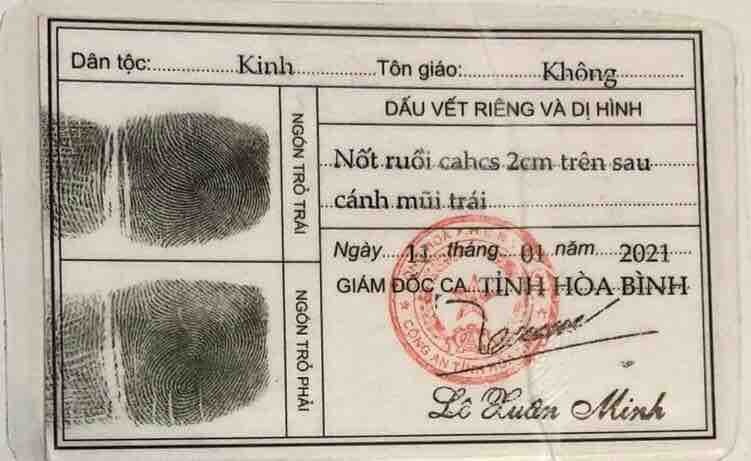 Dân tộc: Kinh Tôn giáo: Không
DẤU VẾT RIÊNG VÀ DỊ HÌNH
NGÓN TRỎ TRÁI
Nốt ruồi cahcs 2cm trên sau
cánh mũi trái
Ngày 11 tháng 01 năm 2021
GIÁM ĐỐC CA TỈNH HÒA BÌNH
NGÓN TRỎ PHẢI
CÔNG AN TỈNH
Lê Xuân Minh